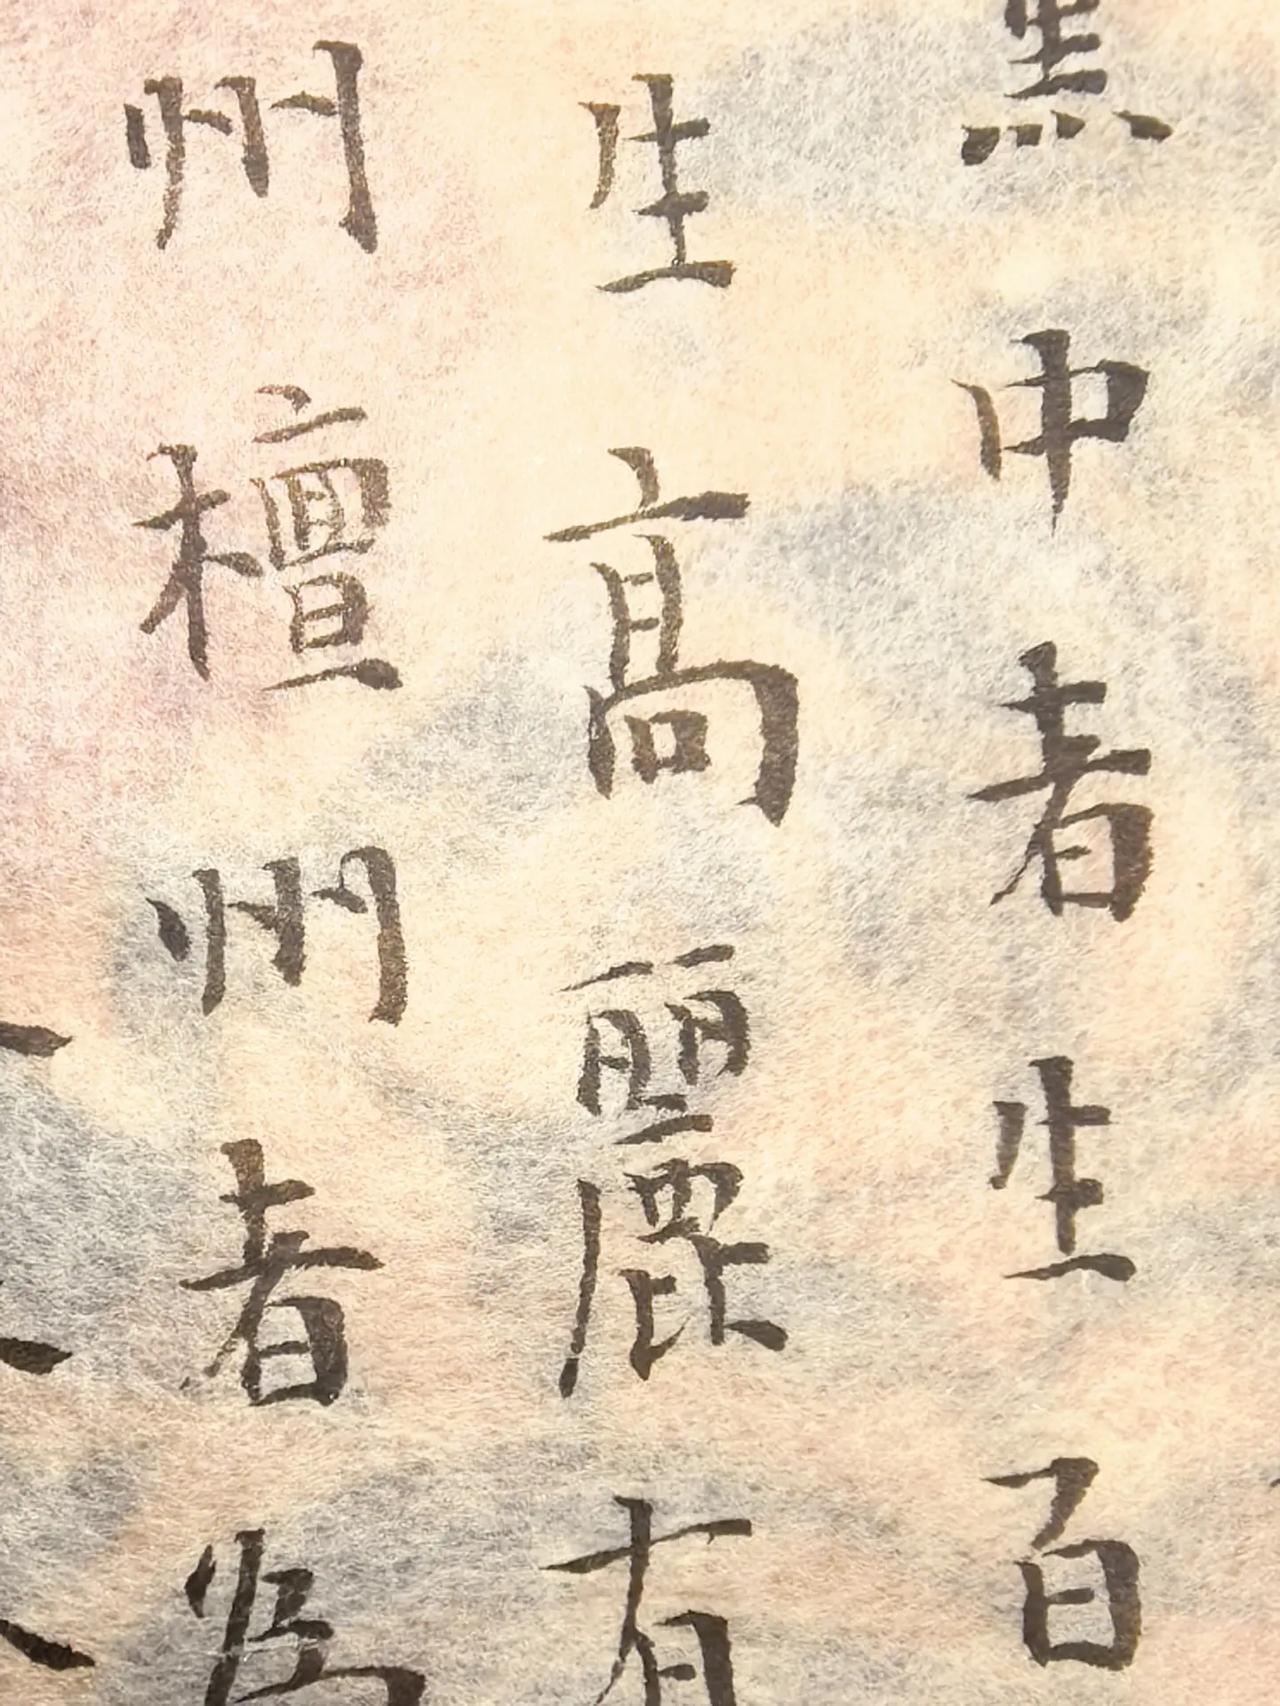 黑中者生百
生高麗有
州檀州者為